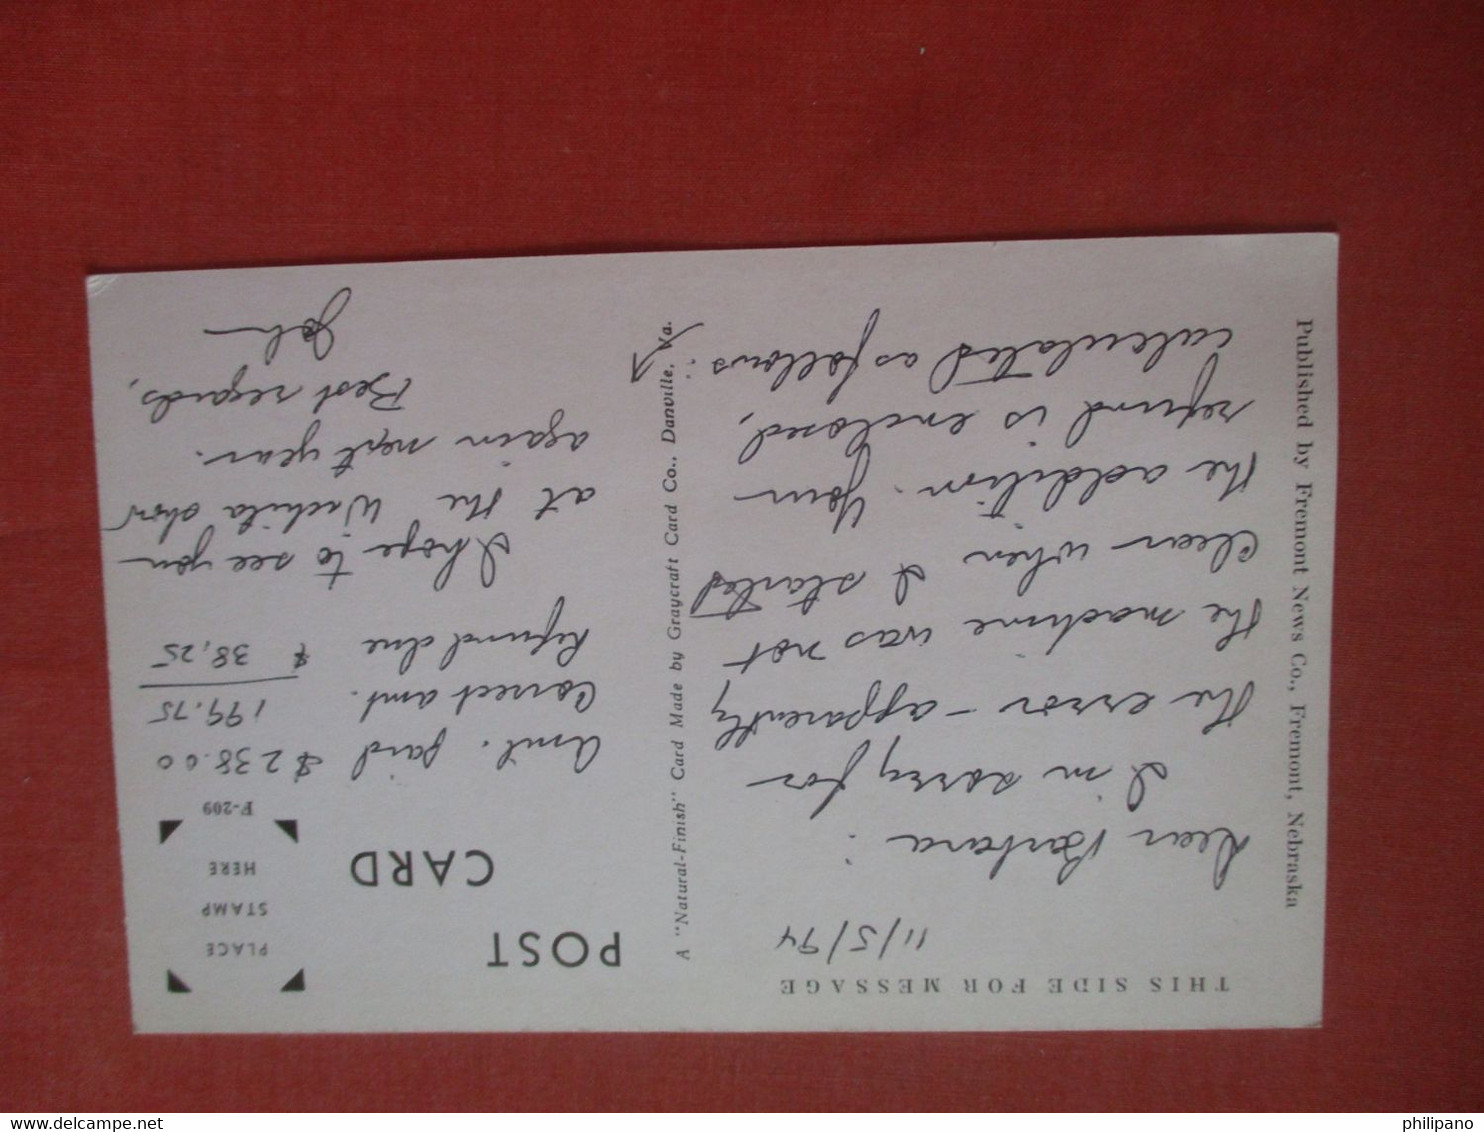 THIS SIDE FOR MESSAGE
11/5/94
Dear Barbara:
I'm sorry for
the error - apparently
the machine was not
clear when I started
the addition. Your
refund is enclosed,
calculated as follows:
Published by Fremont News Co., Fremont, Nebraska
A "Natural-Finish" Card Made by Graycraft Card Co., Danville, Va.
POST
CARD
PLACE
STAMP
HERE
F-209
Amt. paid $238.00
Correct amt. 199.75
Refund due $ 38.25
I hope to see you
at the Wichita show
again next year.
Best regards,
John
delcampe.net
philipano